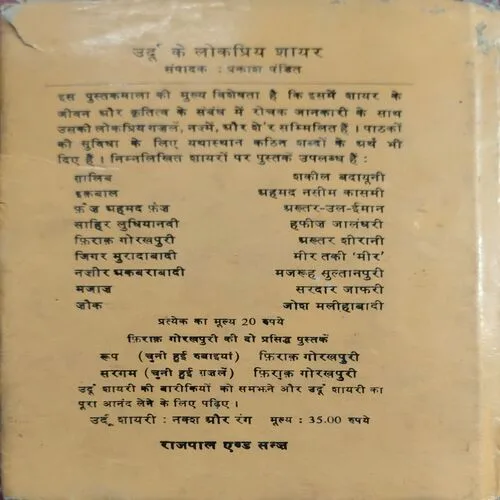 उर्दू के लोकप्रिय शायर
संपादक : प्रकाश पंडित
इस पुस्तकमाला की मुख्य विशेषता है कि इसमें शायर के
जीवन और कृतित्व के संबंध में रोचक जानकारी के साथ
उसकी लोकप्रिय गज़लें, नज़्में, और शे'र सम्मिलित हैं । पाठकों
की सुविधा के लिए यथास्थान कठिन शब्दों के अर्थ भी
दिए हैं । निम्नलिखित शायरों पर पुस्तकें उपलब्ध हैं :
ग़ालिब शकील बदायूनी
इकबाल अहमद नसीम कासमी
फ़ैज़ अहमद फ़ैज़ अख़्तर-उल-ईमान
साहिर लुधियानवी हफ़ीज जालंधरी
फ़िराक़ गोरखपुरी अख़्तर शीरानी
जिगर मुरादाबादी मीर तकी 'मीर'
नज़ीर अकबराबादी मजरूह सुल्तानपुरी
मजाज़ सरदार जाफ़री
ज़ौक जोश मलीहाबादी
प्रत्येक का मूल्य 20 रुपये
फ़िराक़ गोरखपुरी की दो प्रसिद्ध पुस्तकें
रूप (चुनी हुई रुबाइयां) फ़िराक़ गोरखपुरी
सरगम (चुनी हुई ग़ज़लें) फ़िराक़ गोरखपुरी
उर्दू शायरी की बारीकियों को समझने और उर्दू शायरी का
पूरा आनंद लेने के लिए पढ़िए ।
उर्दू शायरी : नक्श और रंग मूल्य : 35.00 रुपये
राजपाल एण्ड सन्ज़